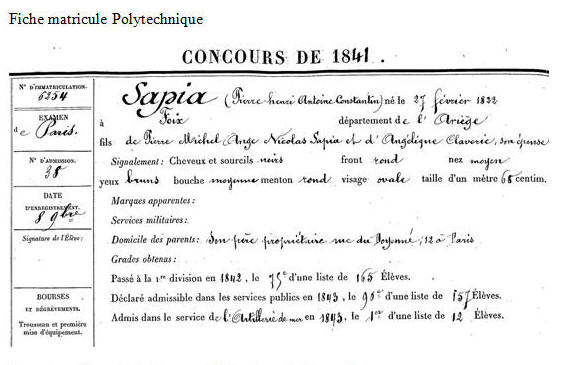 Fiche matricule Polytechnique
CONCOURS DE 1841.
N° D'IMMATRICULATION.
6254
EXAMEN
de Paris.
N° D'ADMISSION.
38
DATE
D'ENREGISTREMENT.
8 9bre
Signature de l'Élève:
BOURSES
ET DÉGRÈVEMENTS.
Trousseau et première
mise d'équipement.
Sapia (Pierre henri Antoine Constantin) né le 27 février 1822
à Foix département de l'Ariège
fils de Pierre Michel Ange Nicolas Sapia et d'Angélique Claverie, son épouse
Signalement: Cheveux et sourcils noirs front rond nez moyen
yeux bruns bouche moyenne menton rond visage ovale taille d'un mètre 68 centim.
Marques apparentes:
Services militaires:
Domicile des parents: Son père propriétaire rue du Doyenné, 12 à Paris
Grades obtenus:
Passé à la 1re division en 1842, le 75e d'une liste de 165 Élèves.
Déclaré admissible dans les services publics en 1843, le d'une liste de 157 Élèves.
Admis dans le service de l'Artillerie de mer en 1843, le 1er d'une liste de 12 Élèves.